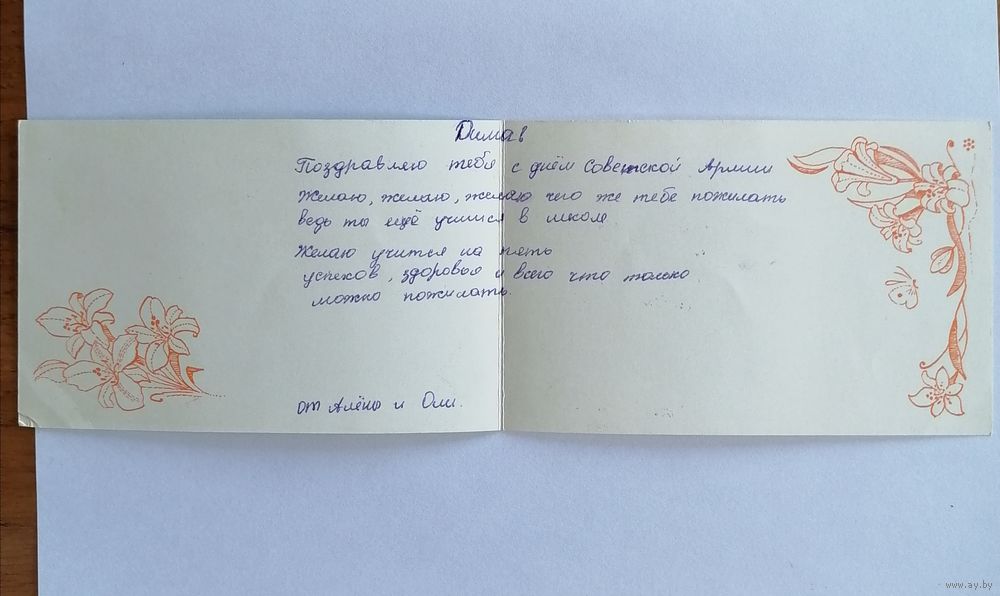 Димав
Поздравляю тебя с днём Советской Армии
Желаю, желаю, желаю чего же тебе пожилать
ведь ты ещё учишся в школе
Желаю учится на пять
успехов, здоровья и всего что только
можно пожилать.
от Алёны и Оли.
www.ay.by